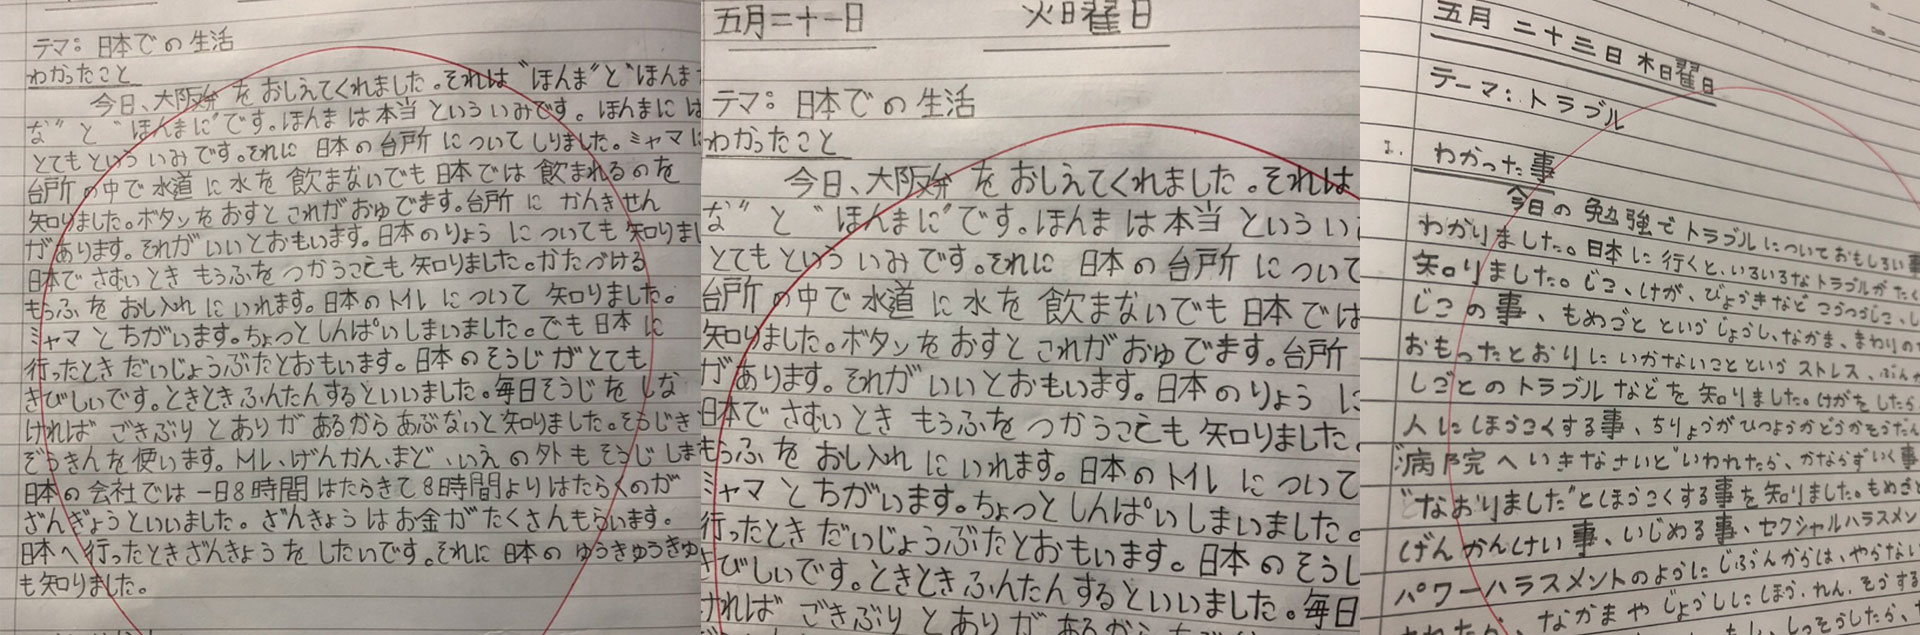 テマ: 日本での生活
わかったこと
今日、大阪弁をおしえてくれました。それは〝ほんま〟と〝ほんま
な〟と〝ほんまに〟です。ほんまは本当というういみです。ほんまには
とてもというういみです。それに日本の台所についてしりました。ミャマに
台所の中で水道に水を飲まないでも日本では飲まれるのを
知りました。ボタンをおすとこれがおゆでます。台所にかんきせん
があります。それがいいとおもいます。日本のりょうについても知りまし
日本でさむいときもうふをつかうことも知りました。かたづける
もうふをおし入れにいれます。日本のトイレについて知りました。
ミャマとちがいます。ちょっとしんぱいしまいました。でも日本に
行ったときだいじょうぶたとおもいます。日本のそうじがとても
きびしいです。ときときふんたんするといいました。毎日そうじをしな
ければごきぶりとありがあるからあぶないと知りました。そうじき
ぞうきんを使います。トイレ、げんかん、まど、いえの外もそうじしま
日本の会社では一日8時間はたらきて8時間よりはたらくのが
ざんぎょうといいました。ざんきょうはお金がたくさんもらいます。
日本へ行ったときざんきょうをしたいです。それに日本のゆうきゅうきゅ
も知りました。
五月二十一日 火曜日
テマ: 日本での生活
わかったこと
今日、大阪弁をおしえてくれました。それは
な〟と〝ほんまに〟です。ほんまは本当というい
とてもというういみです。それに日本の台所について
台所の中で水道に水を飲まないでも日本では
知りました。ボタンをおすとこれがおゆでます。台所
があります。それがいいとおもいます。日本のりょうに
日本でさむいときもうふをつかうことも知りました。
もうふをおし入れにいれます。日本のトイレについて
ミャマとちがいます。ちょっとしんぱいしまいました。
行ったときだいじょうぶたとおもいます。日本のそうし
きびしいです。ときときふんたんするといいました。毎日
ければごきぶりとありがあるから
五月二十三日 木曜日
テーマ: トラブル
1. わかった事
今日の勉強でトラブルについておもしろい事
わかりました。日本に行くと、いろいろなトラブルがたく
知りました。じこ、けが、びょうきなどこうつうじこ、し
じこの事、もめごとというじょうし、なかま、まわりの
おもったとおりにいかないことというストレス、ぶん
しごとのトラブルなどを知りました。けがをしたら
人にほうこくする事、ちりょうがひつようかどうかそうだん
病院へいきなさいといわれたら、かならずいく事
〝なおりました〟とほうこくする事を知りました。もめご
げんかんけい事、いじめる事、セクシャルハラスメン
パワーハラスメントのようにじぶんからは、やらない
なかまやじょうしにほう、れん、そうする